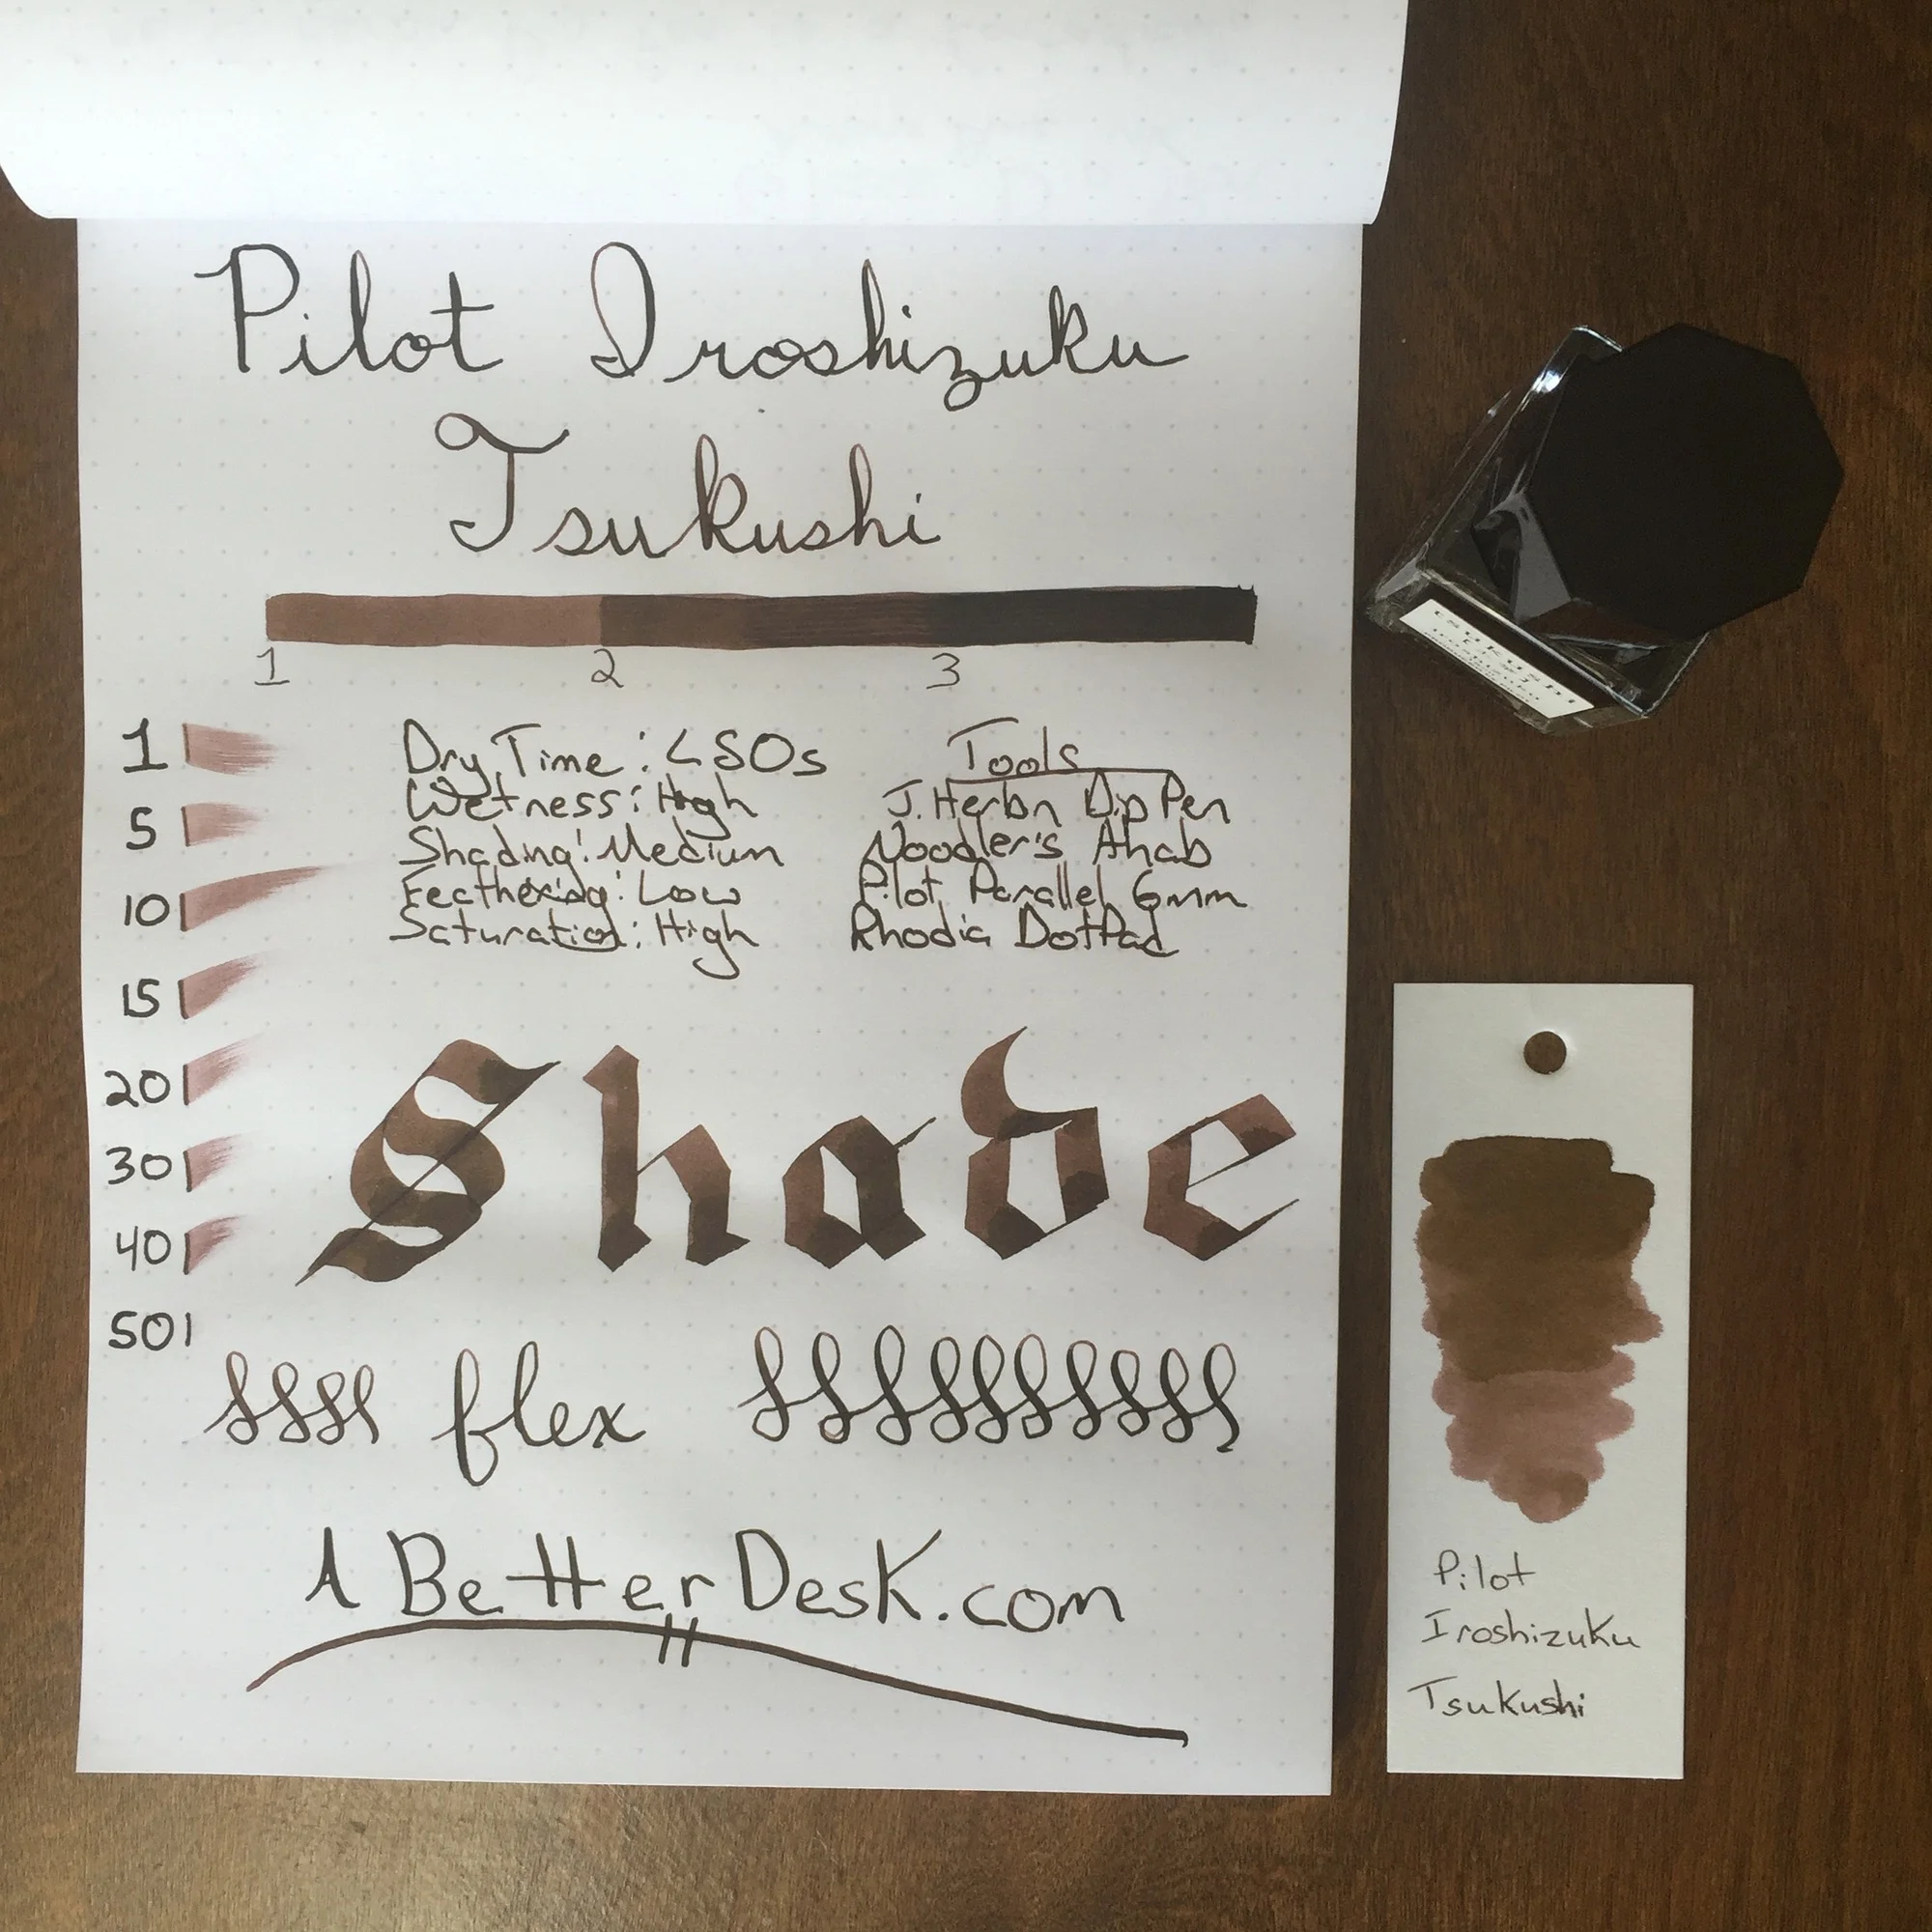 Pilot Iroshizuku
Tsukushi
1 2 3
1
5
10
15
20
30
40
50
Dry Time: <50s
Wetness: High
Shading: Medium
Feathering: Low
Saturation: High
Tools
J.Herbn Dip Pen
Noodler's Ahab
Pilot Parallel 6mm
Rhodia DotPad
Shade
flex
A BetterDesk.com
TSUKUSHI
Pilot
Iroshizuku
Tsukushi